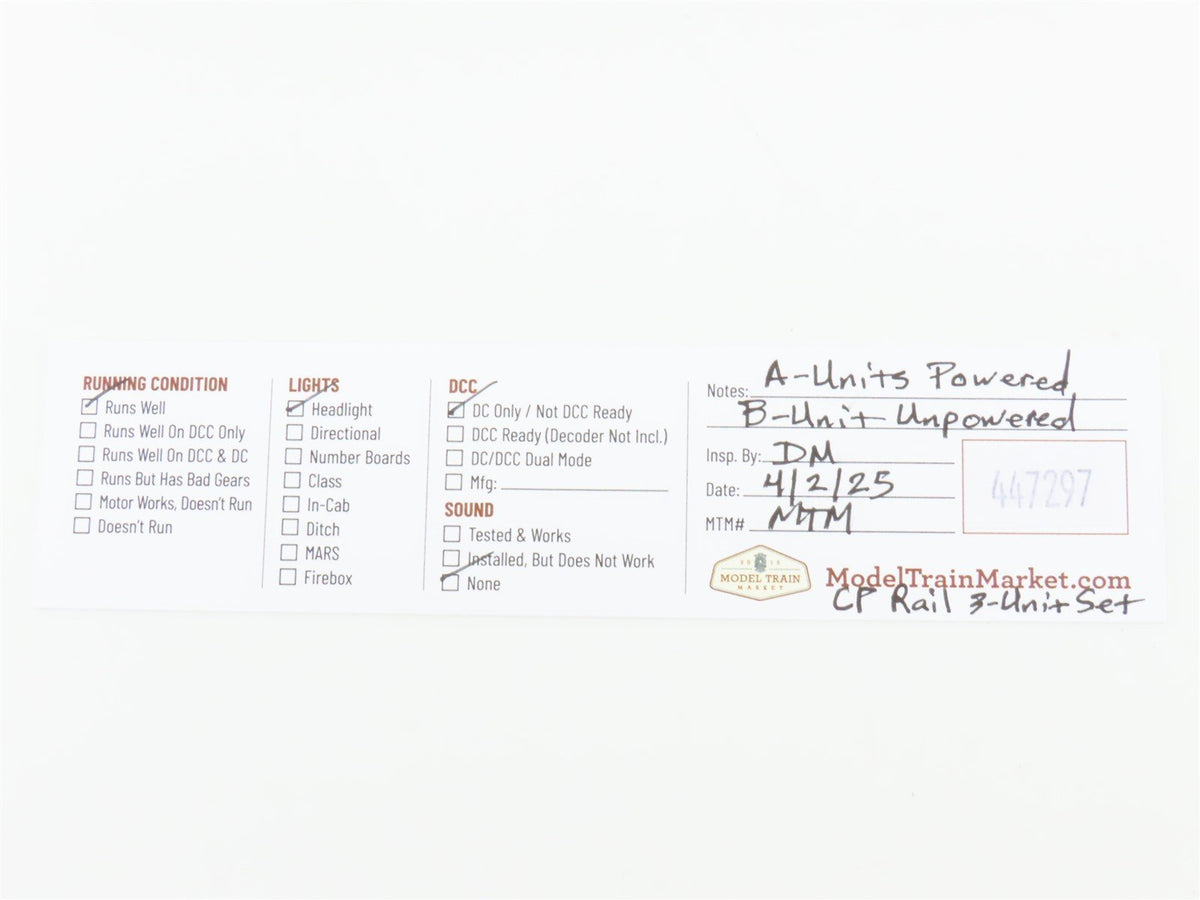 RUNNING CONDITION
Runs Well
Runs Well On DCC Only
Runs Well On DCC & DC
Runs But Has Bad Gears
Motor Works, Doesn't Run
Doesn't Run
LIGHTS
Headlight
Directional
Number Boards
Class
In-Cab
Ditch
MARS
Firebox
DCC
DC Only / Not DCC Ready
DCC Ready (Decoder Not Incl.)
DC/DCC Dual Mode
Mfg:
SOUND
Tested & Works
Installed, But Does Not Work
None
Notes: A-Units Powered
B-Unit Unpowered
Insp. By: DM
Date: 4/2/25
MTM# MTM
447297
MODEL TRAIN
MARKET
ModelTrainMarket.com
CP Rail 3-Unit Set